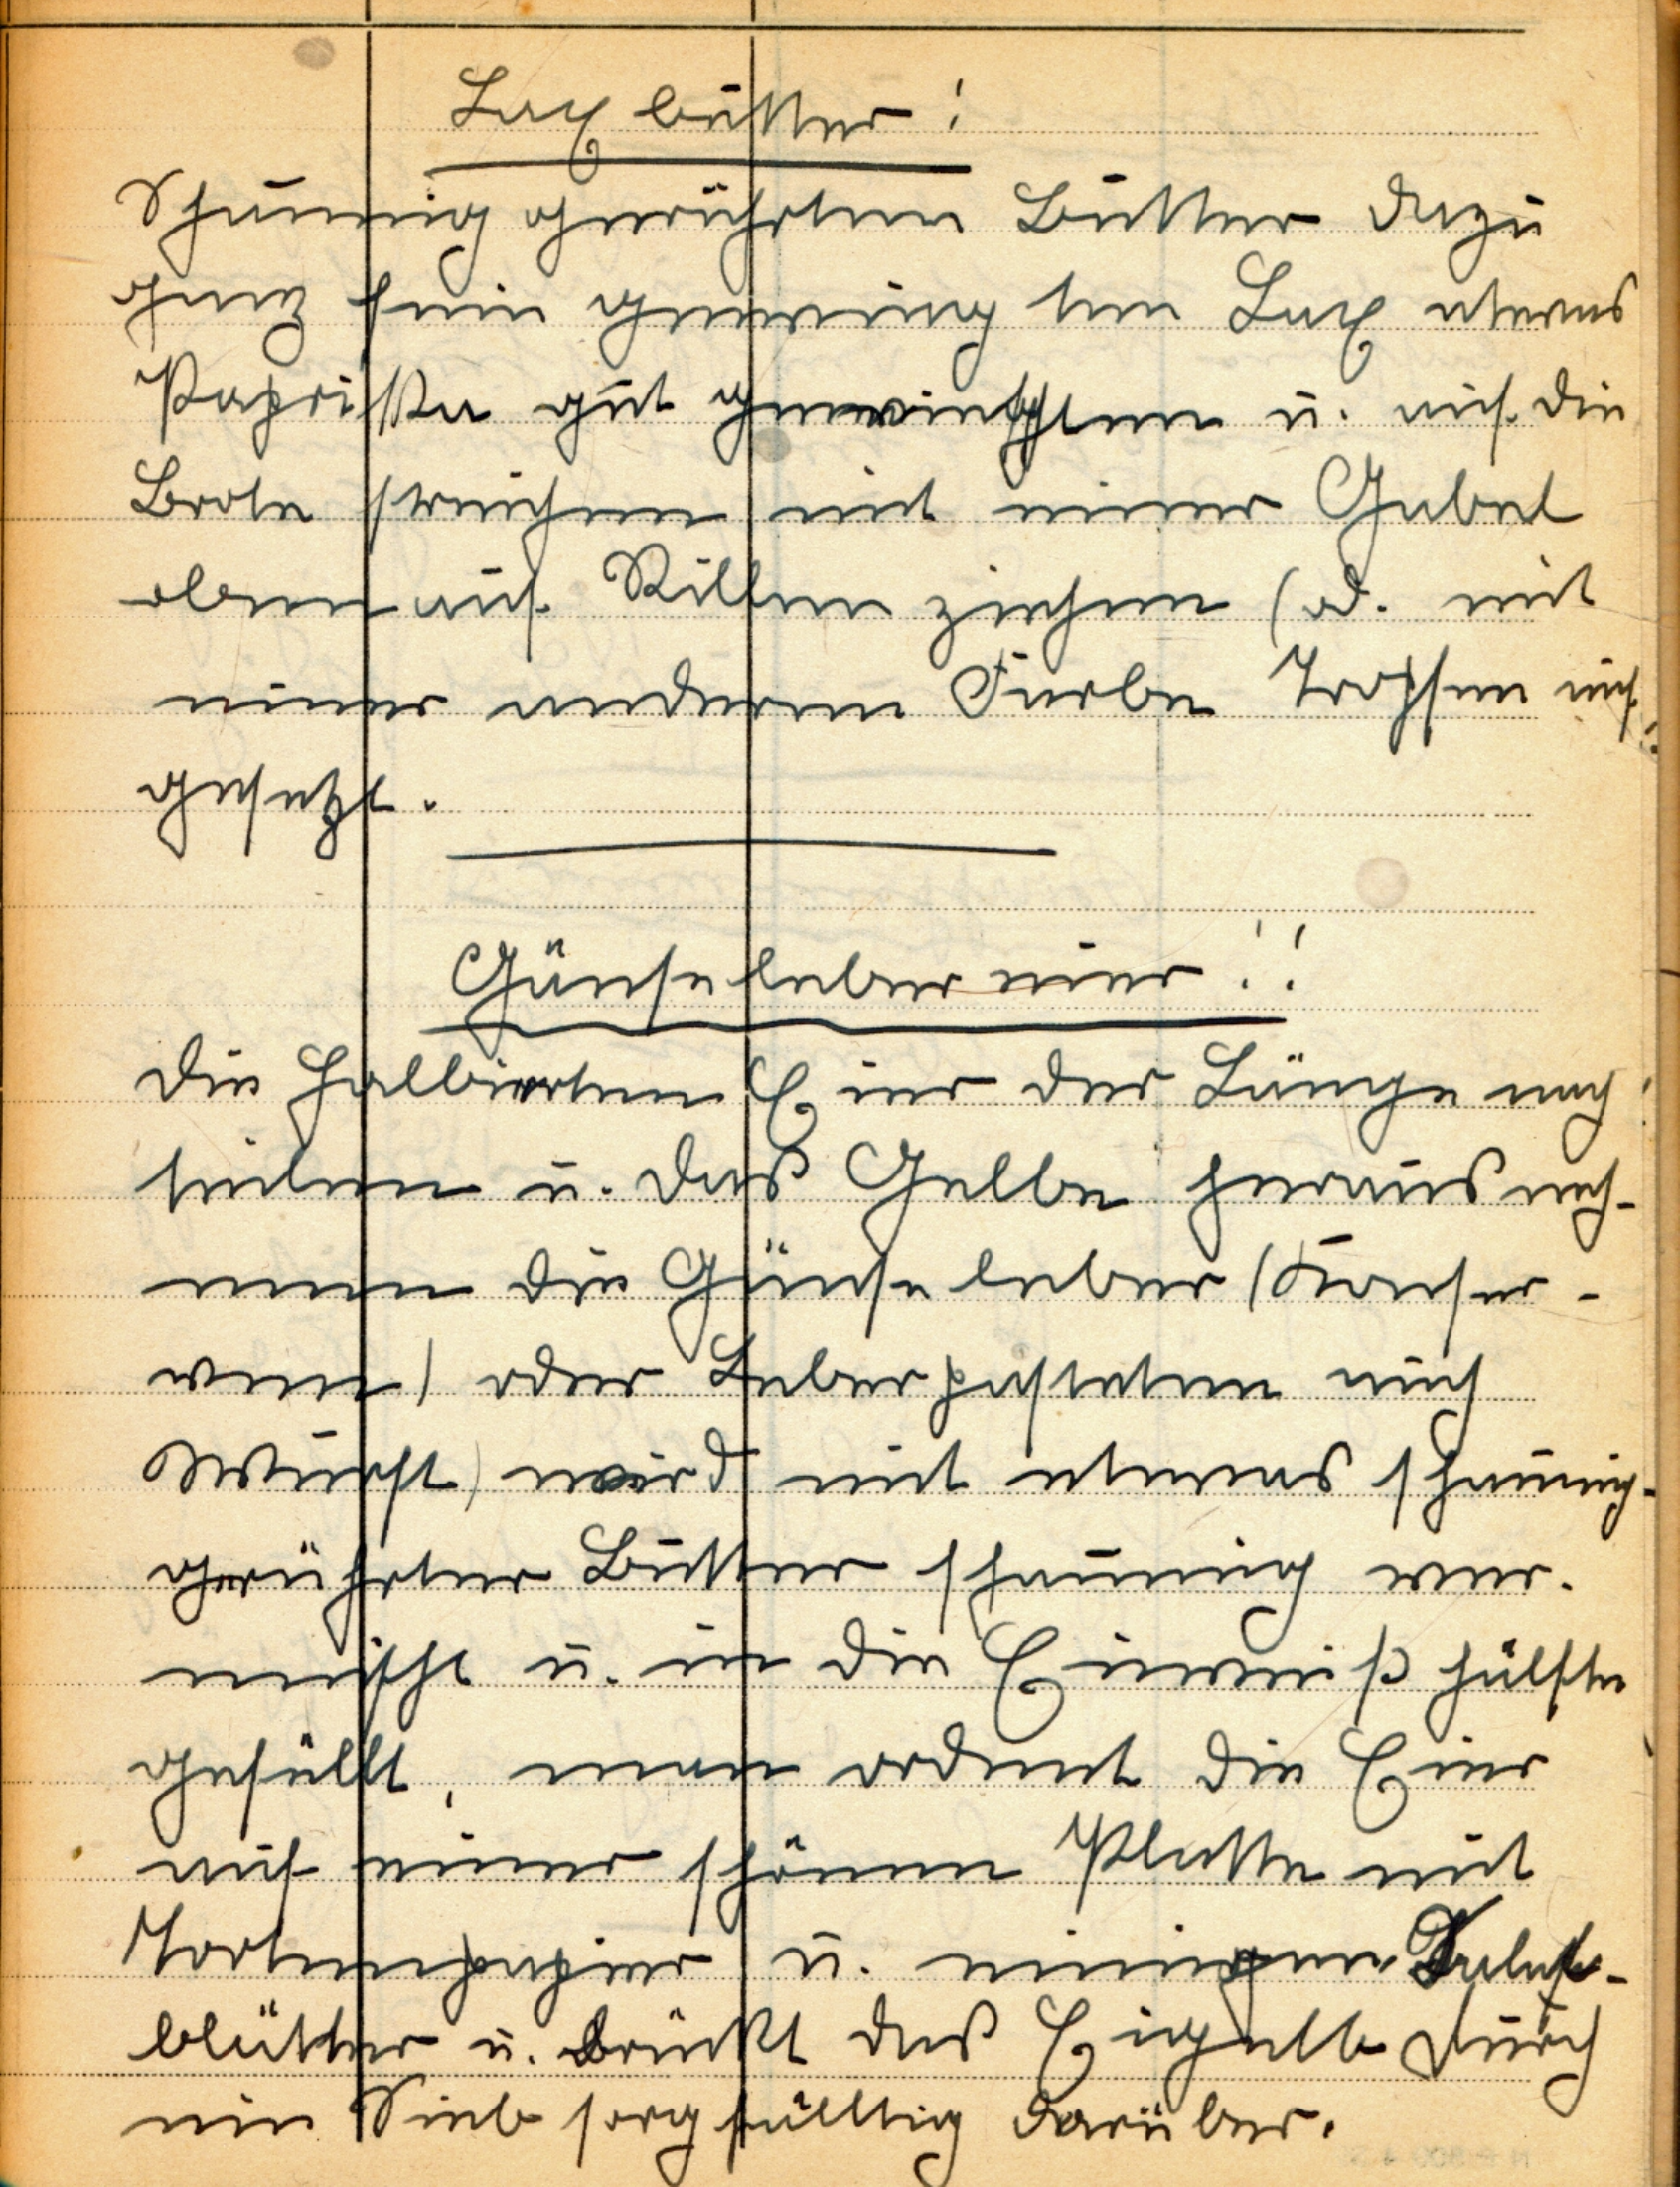 Lax butter!
Schaumig gerührten Butter dazu
ganz fein gewieg ten Lax etwas
Paprika gut gemischten u. auf die
Brote streichen mit einer Gabel
oben auf Rillen ziehen (od. mit
einer anderen Farbe Tropfen auf
gesetzt.
Gänseleber eier!!
Die halbierten Eier der Länge nach
teilen u. daß Gelbe herausneh-
men die Gänse leber (Konser-
wen) oder Leberpasteten auch
Wurst) wird mit etwas schaumig-
gerührter Butter schaumig wer.
mischt u. in die Eiweiß hälfte
gefüllt, man ordent die Eier
auf einer schönen Platte mit
Tortenpapier u. einigen Salat-
blätter u. drückt daß Eigelb durch
ein Sieb sorgfälltig darüber.